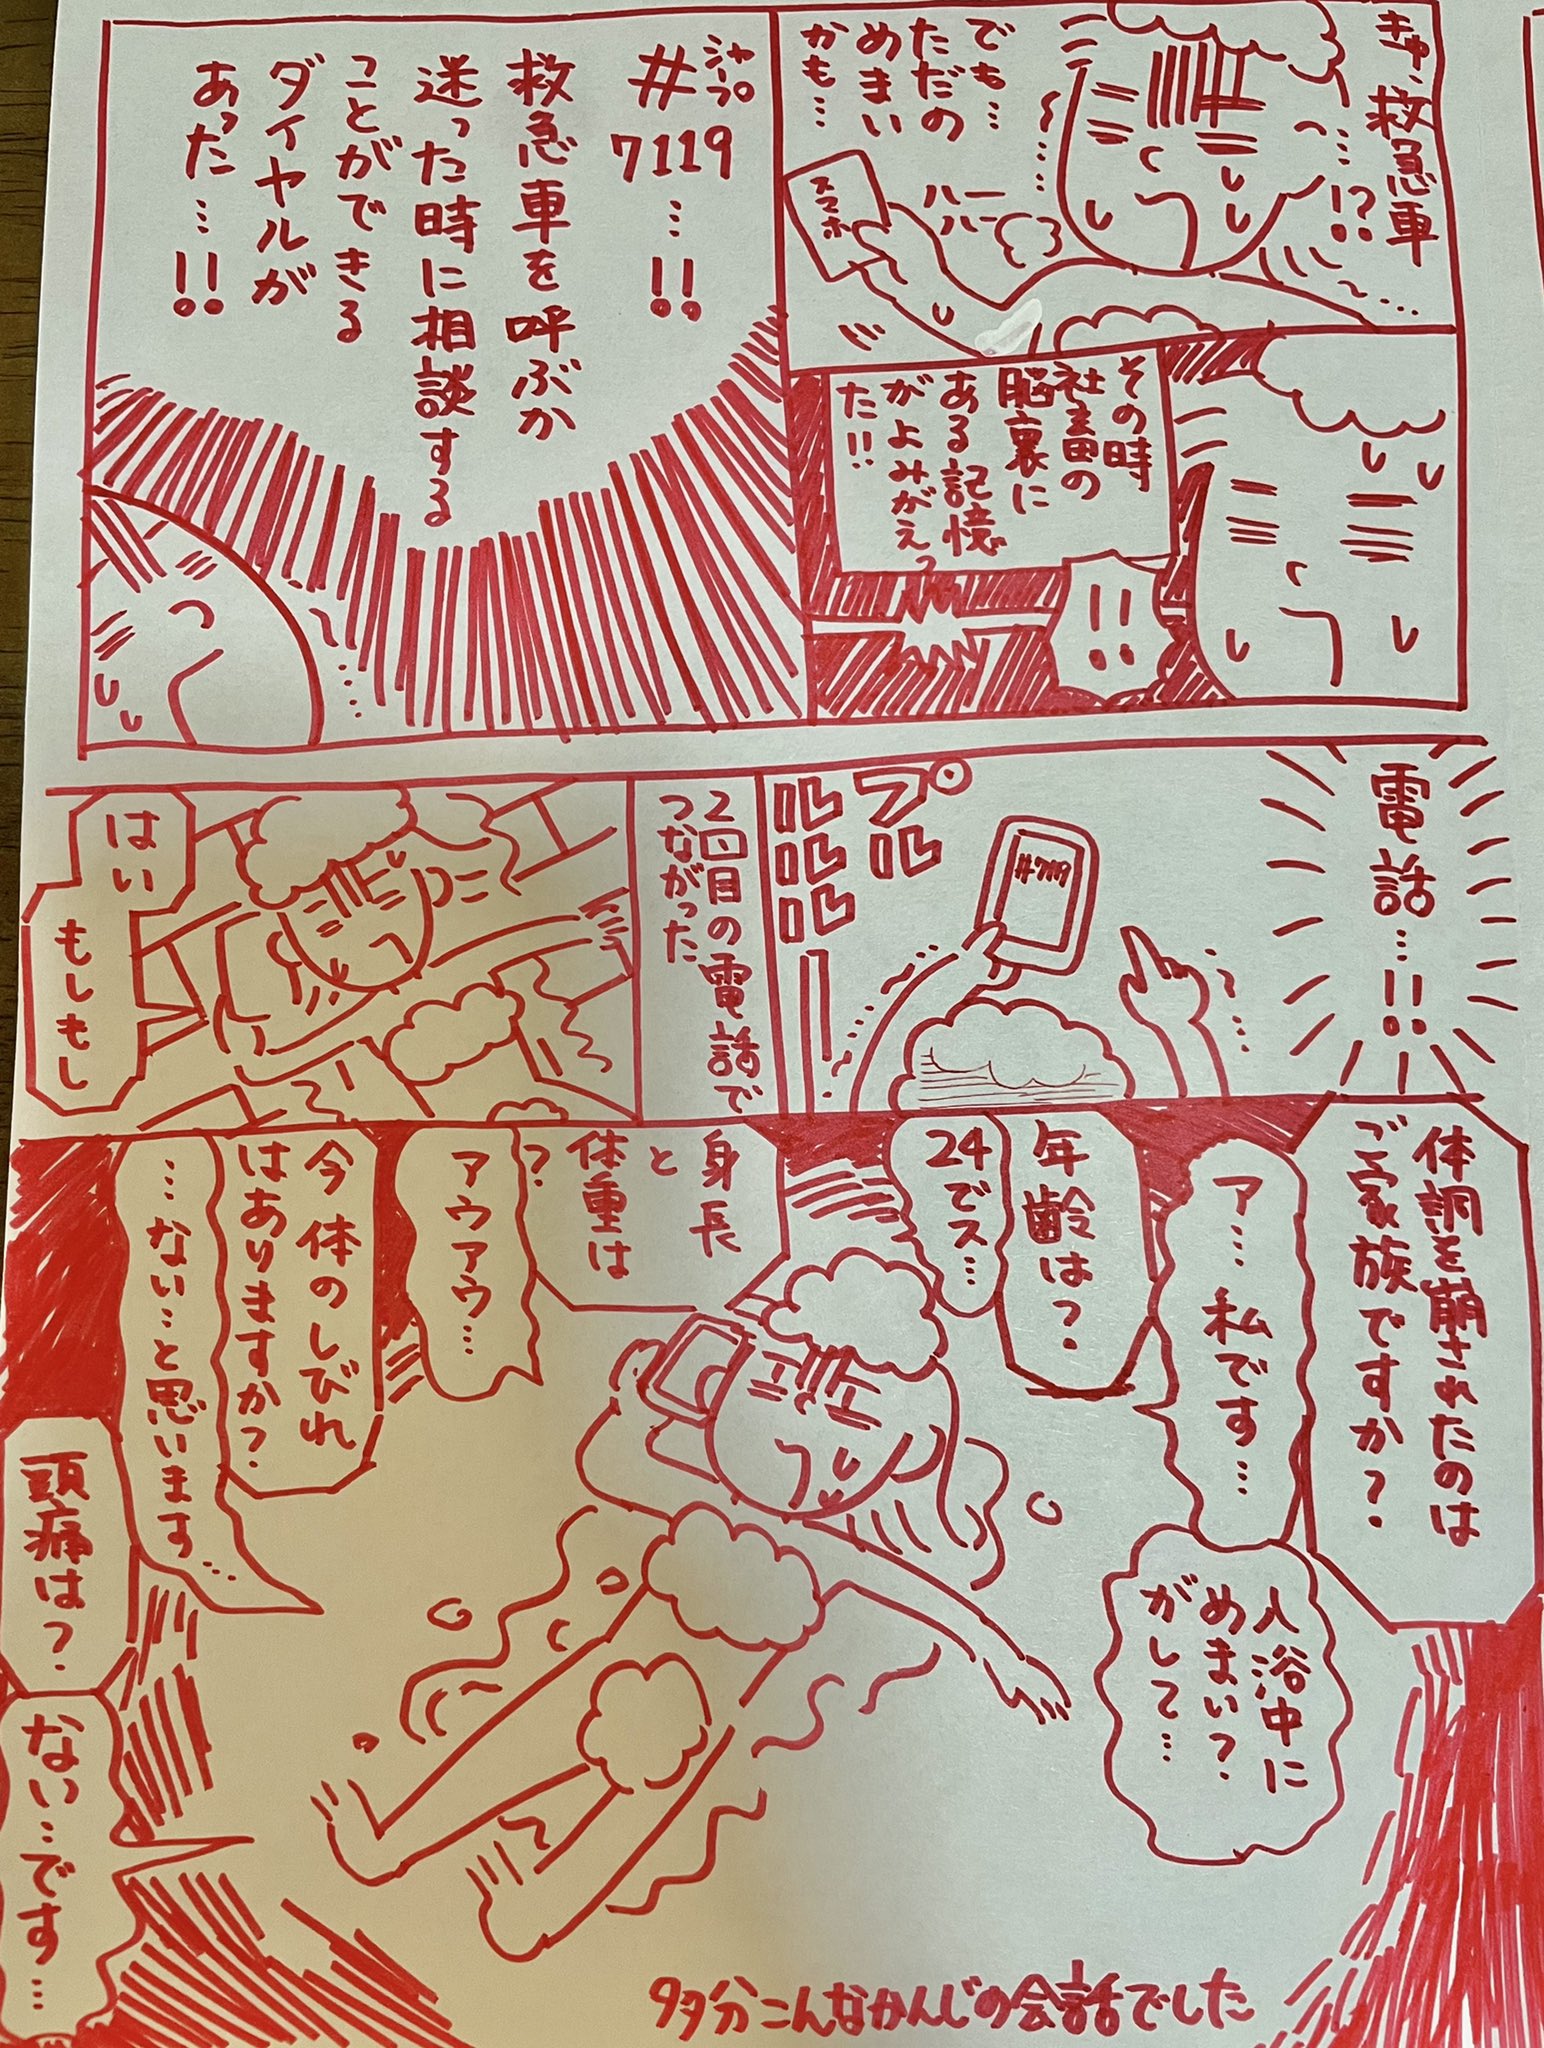 きゅ、救急車
…!?
でも…
ただの
めまい
かも…
スマホ
ハー
ハー
その時
社畜の
脳裏に
ある記憶
がよみがえっ
た!!
!!
シャープ
#7119…!!
救急車を呼ぶか
迷った時に相談する
ことができる
ダイヤルが
あった…!!
電話…!!
#7119
プルルルルル
2回目の電話で
つながった
はい
もしもし
体調を崩されたのは
ご家族ですか?
ア… 私です…
入浴中に
めまい?
がして…
年齢は?
24でス…
身長
と
体重は
?
アウアウ…
今 体のしびれ
はありますか?
…ない…と思います…
頭痛は?
ない…です…
多分こんなかんじの会話でした